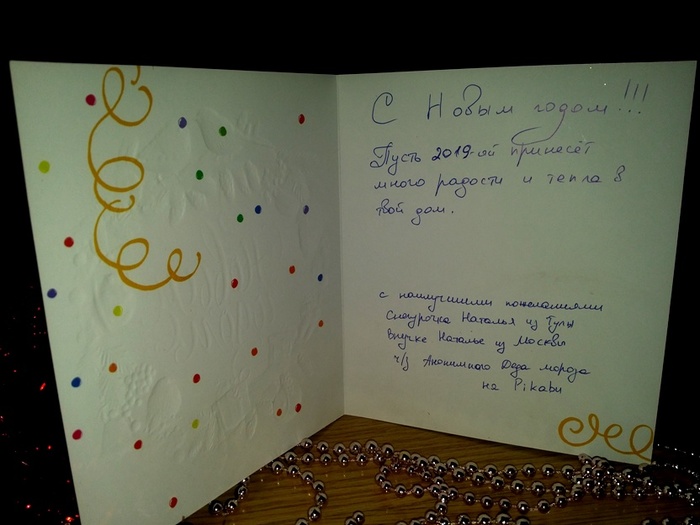 С Новым годом!!!
Пусть 2019-ый принесёт
много радости и тепла в
твой дом.
с наилучшими пожеланиями
Снегурочка Наталья из Тулы
внучке Наталье из Москвы
ч/з Анонимного Деда мороза
на Pikabu